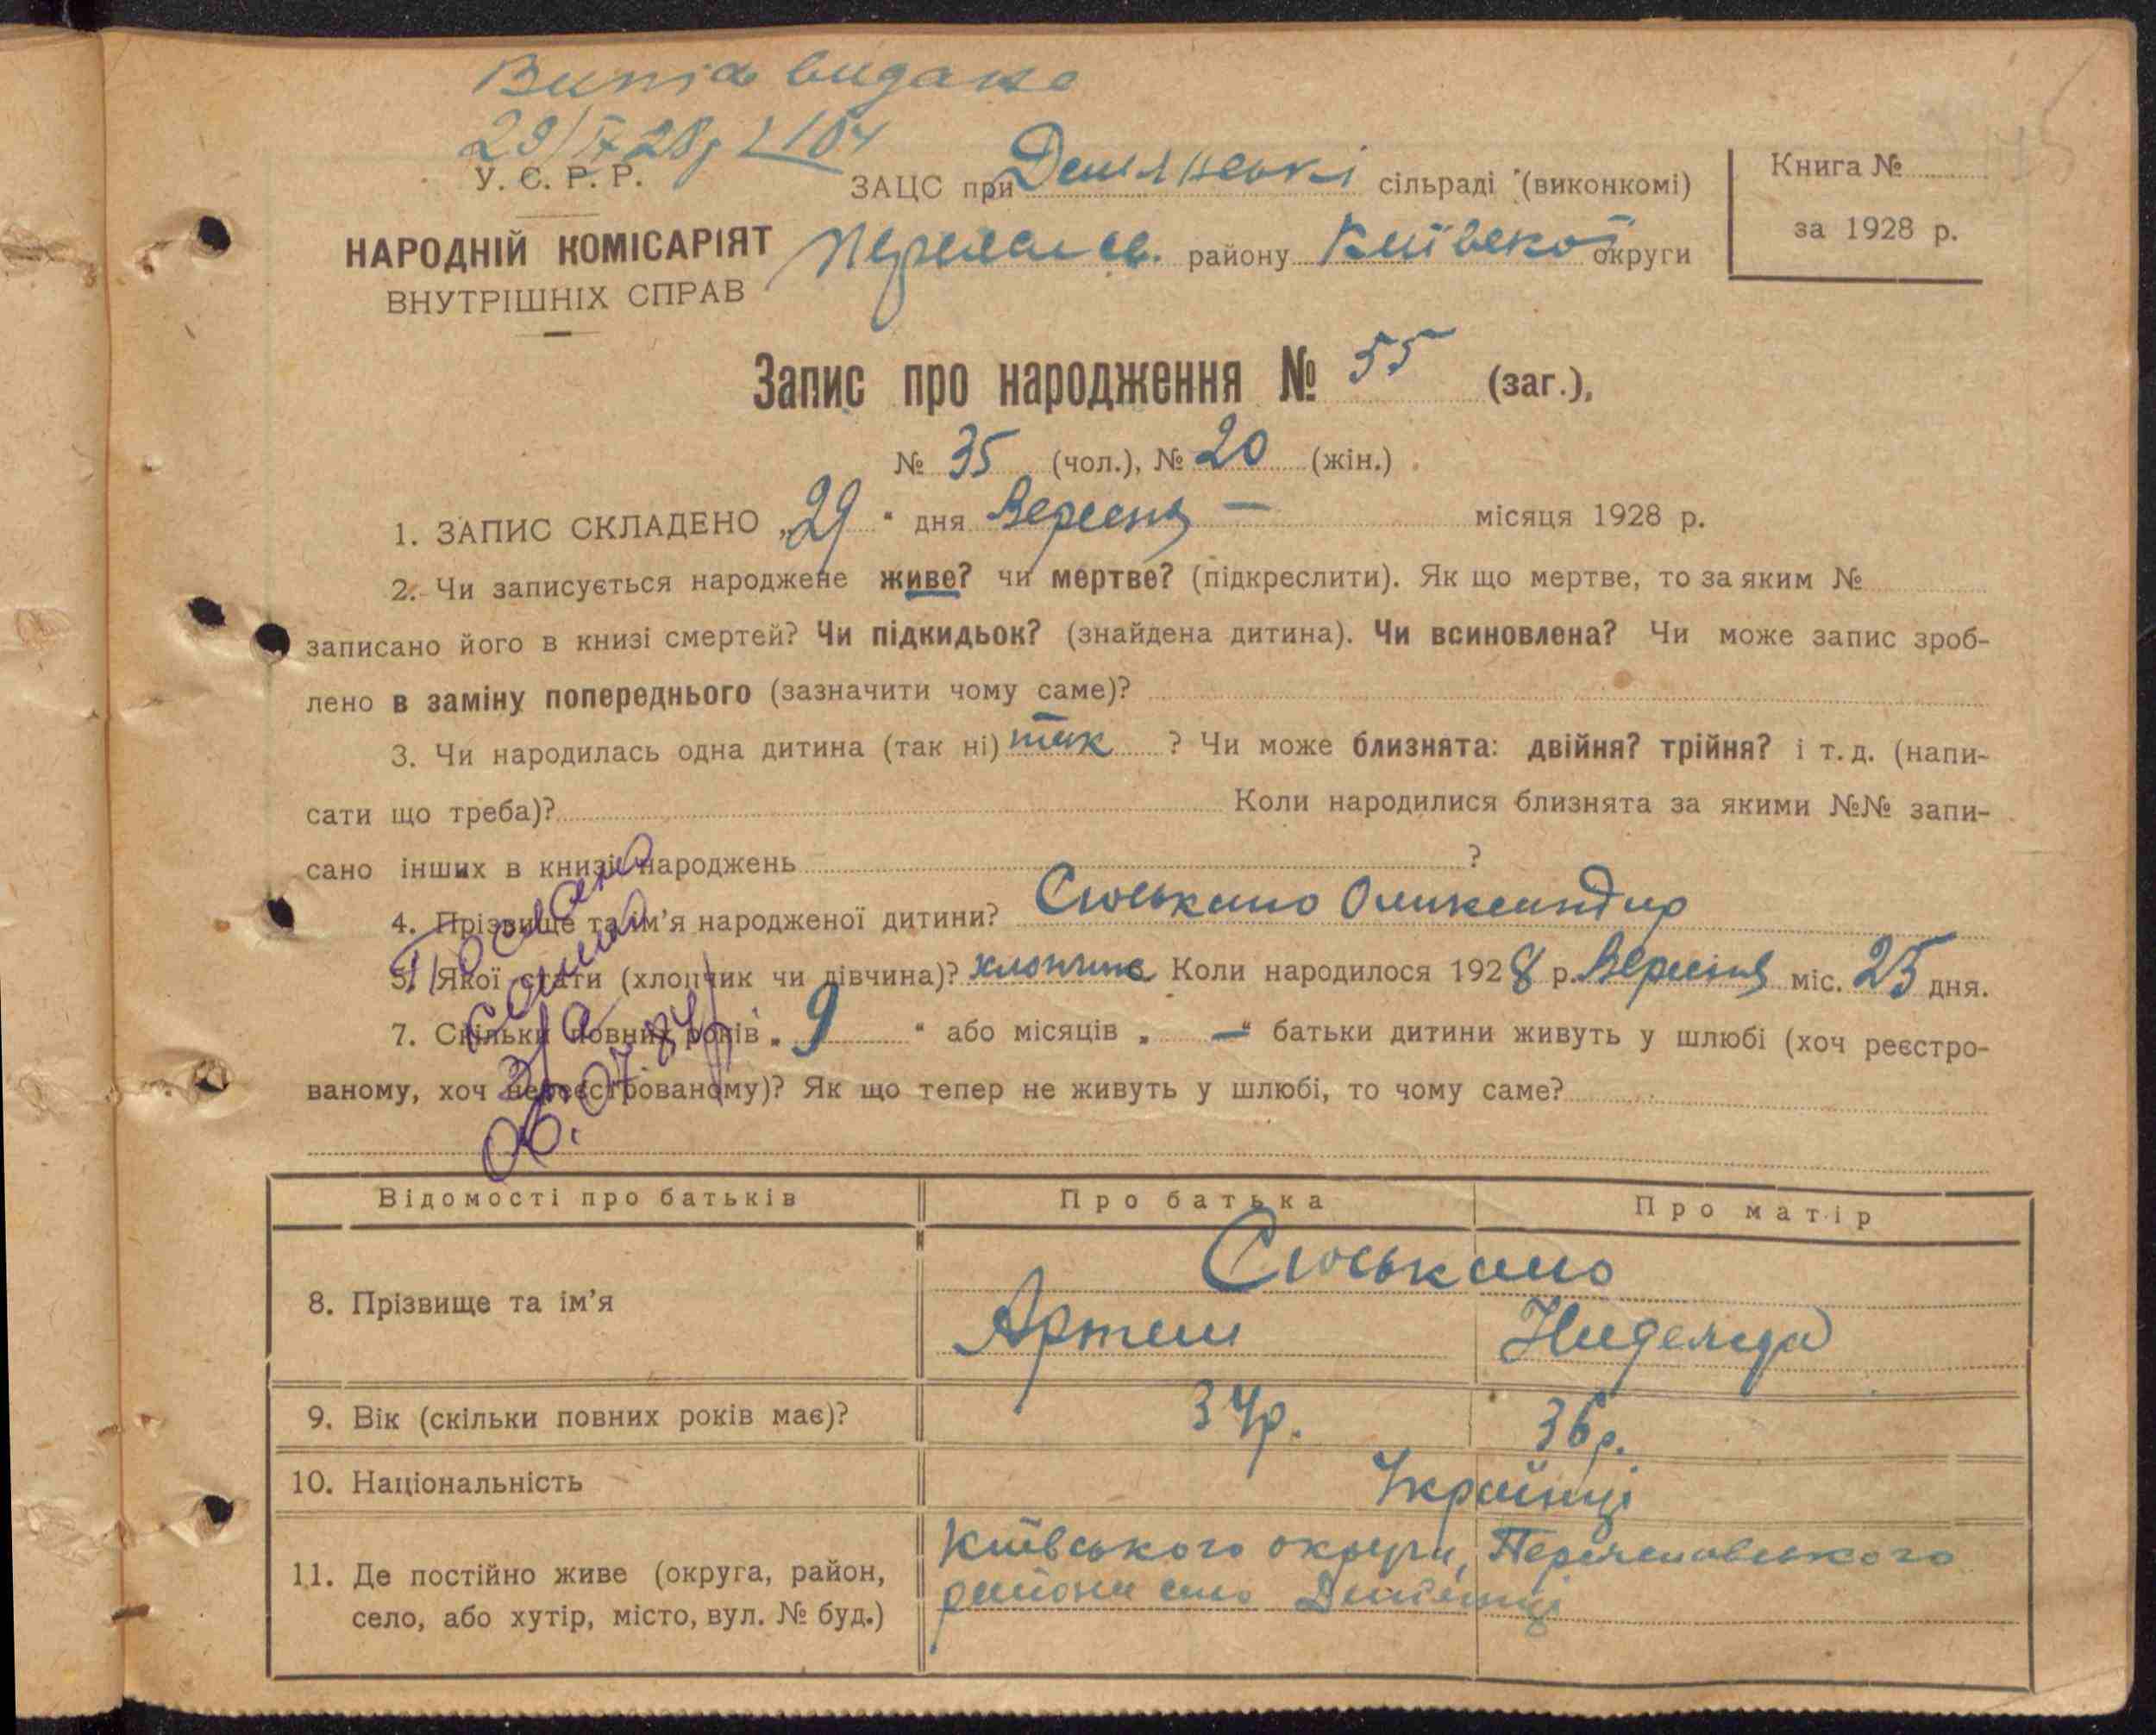 Випис видано
29/IX 28 р. 104
У. С. Р. Р.
ЗАЦС при сільраді (виконкомі)
Книга №
за 1928 р.
НАРОДНІЙ КОМІСАРІЯТ
ВНУТРІШНІХ СПРАВ
Переяслв. району Київської округи
Запис про народження № 55 (заг.),
№ 35 (чол.), № 20 (жін.)
1. ЗАПИС СКЛАДЕНО „29“ дня Вересня — місяця 1928 р.
2. Чи записується народжене живе? чи мертве? (підкреслити). Як що мертве, то за яким №
записано його в книзі смертей? Чи підкидьок? (знайдена дитина). Чи всиновлена? Чи може запис зроб-
лено в заміну попереднього (зазначити чому саме)?
3. Чи народилась одна дитина (так ні) так ? Чи може близнята: двійня? трійня? і т. д. (напи-
сати що треба)? Коли народилися близнята за якими №№ запи-
сано інших в книзі народжень ?
4. Прізвище та ім’я народженої дитини? Сюськало Олександир
5. Якої стати (хлопчик чи дівчина)? хлопчик Коли народилося 1928 р. Вересня міс. 25 дня.
7. Скільки повних років „9“ або місяців „—“ батьки дитини живуть у шлюбі (хоч реєстро-
ваному, хоч нереєстрованому)? Як що тепер не живуть у шлюбі, то чому саме?
06.07.84
Відомості про батьків Про батька Про матір
8. Прізвище та ім’я Сюськало
Артем
9. Вік (скільки повних років має)? 34р. 36р.
10. Національність Українці
11. Де постійно живе (округа, район,
село, або хутір, місто, вул. № буд.)
Київського округи, Переяславського
района село